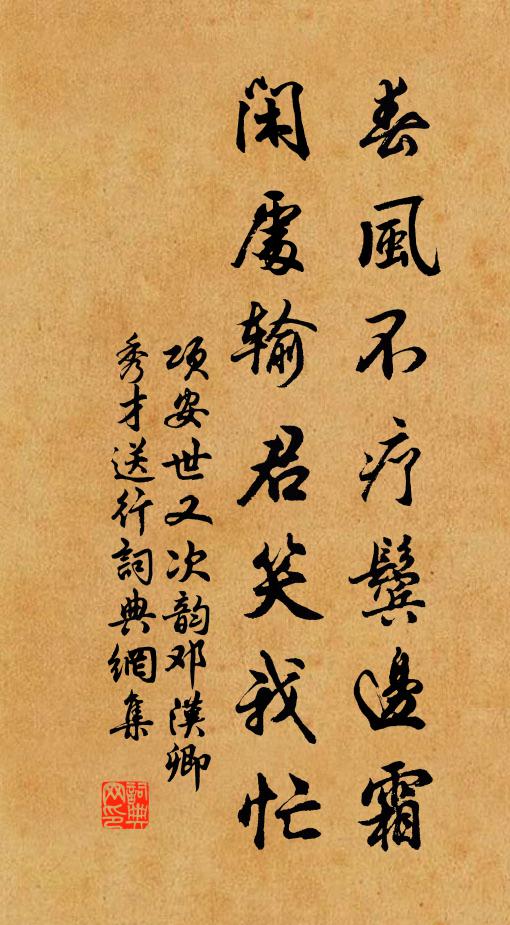 春風不疗鬓邊霜
閑處输君笑我忙
项安世又次韵邓漢卿
秀才送行詞典網集
詞典网印